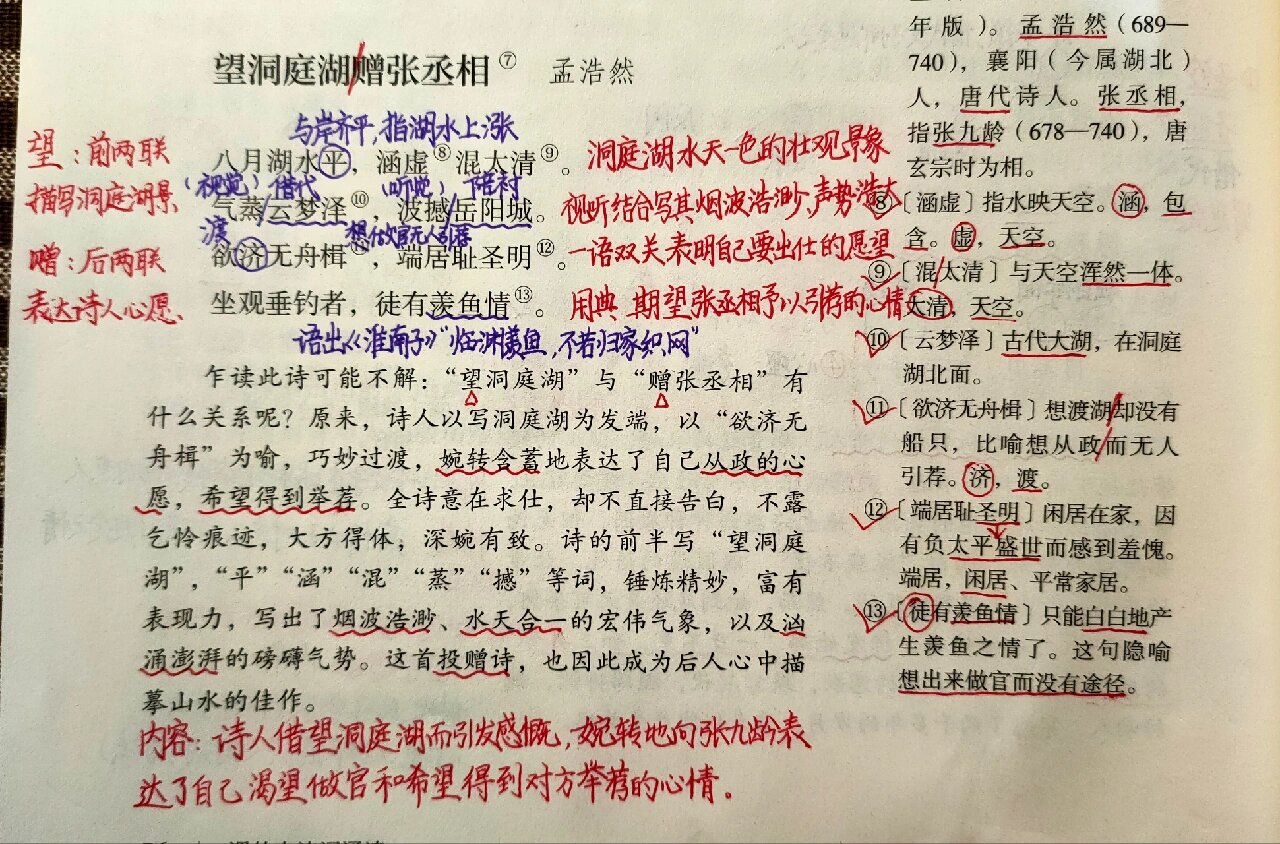 望洞庭湖赠张丞相⑦ 孟浩然
与岸齐平,指湖水上涨
八月湖水平,涵虚⑧混太清⑨。
洞庭湖水天一色的壮观景象
(视觉) 借代 (听觉)
气蒸云梦泽⑩,波撼岳阳城。
视听结合写其烟波浩渺、声势浩大
渡 想做官无人引荐
欲济无舟楫⑪,端居耻圣明⑫。
一语双关 表明自己要出仕的愿望
坐观垂钓者,徒有羡鱼情⑬。
用典 期望张丞相予以引荐的心情
语出《淮南子》“临渊羡鱼,不若归家织网”
望:前两联
描写洞庭湖景
赠:后两联
表达诗人心愿、
乍读此诗可能不解:“望洞庭湖”与“赠张丞相”有
什么关系呢?原来,诗人以写洞庭湖为发端,以“欲济无
舟楫”为喻,巧妙过渡,婉转含蓄地表达了自己从政的心
愿,希望得到举荐。全诗意在求仕,却不直接告白,不露
乞怜痕迹,大方得体,深婉有致。诗的前半写“望洞庭
湖”,“平”“涵”“混”“蒸”“撼”等词,锤炼精妙,富有
表现力,写出了烟波浩渺、水天合一的宏伟气象,以及汹
涌澎湃的磅礴气势。这首投赠诗,也因此成为后人心中描
摹山水的佳作。
内容:诗人借望洞庭湖而引发感慨,婉转地向张九龄表
达了自己渴望做官和希望得到对方举荐的心情.
年版)。孟浩然(689—
740),襄阳(今属湖北)
人,唐代诗人。张丞相,
指张九龄(678—740),唐
玄宗时为相。
⑧〔涵虚〕指水映天空。涵,包
含。虚,天空。
⑨〔混太清〕与天空浑然一体。
太清,天空。
⑩〔云梦泽〕古代大湖,在洞庭
湖北面。
⑪〔欲济无舟楫〕想渡湖却没有
船只,比喻想从政而无人
引荐。济,渡。
⑫〔端居耻圣明〕闲居在家,因
有负太平盛世而感到羞愧。
端居,闲居、平常家居。
⑬〔徒有羡鱼情〕只能白白地产
生羡鱼之情了。这句隐喻
想出来做官而没有途径。